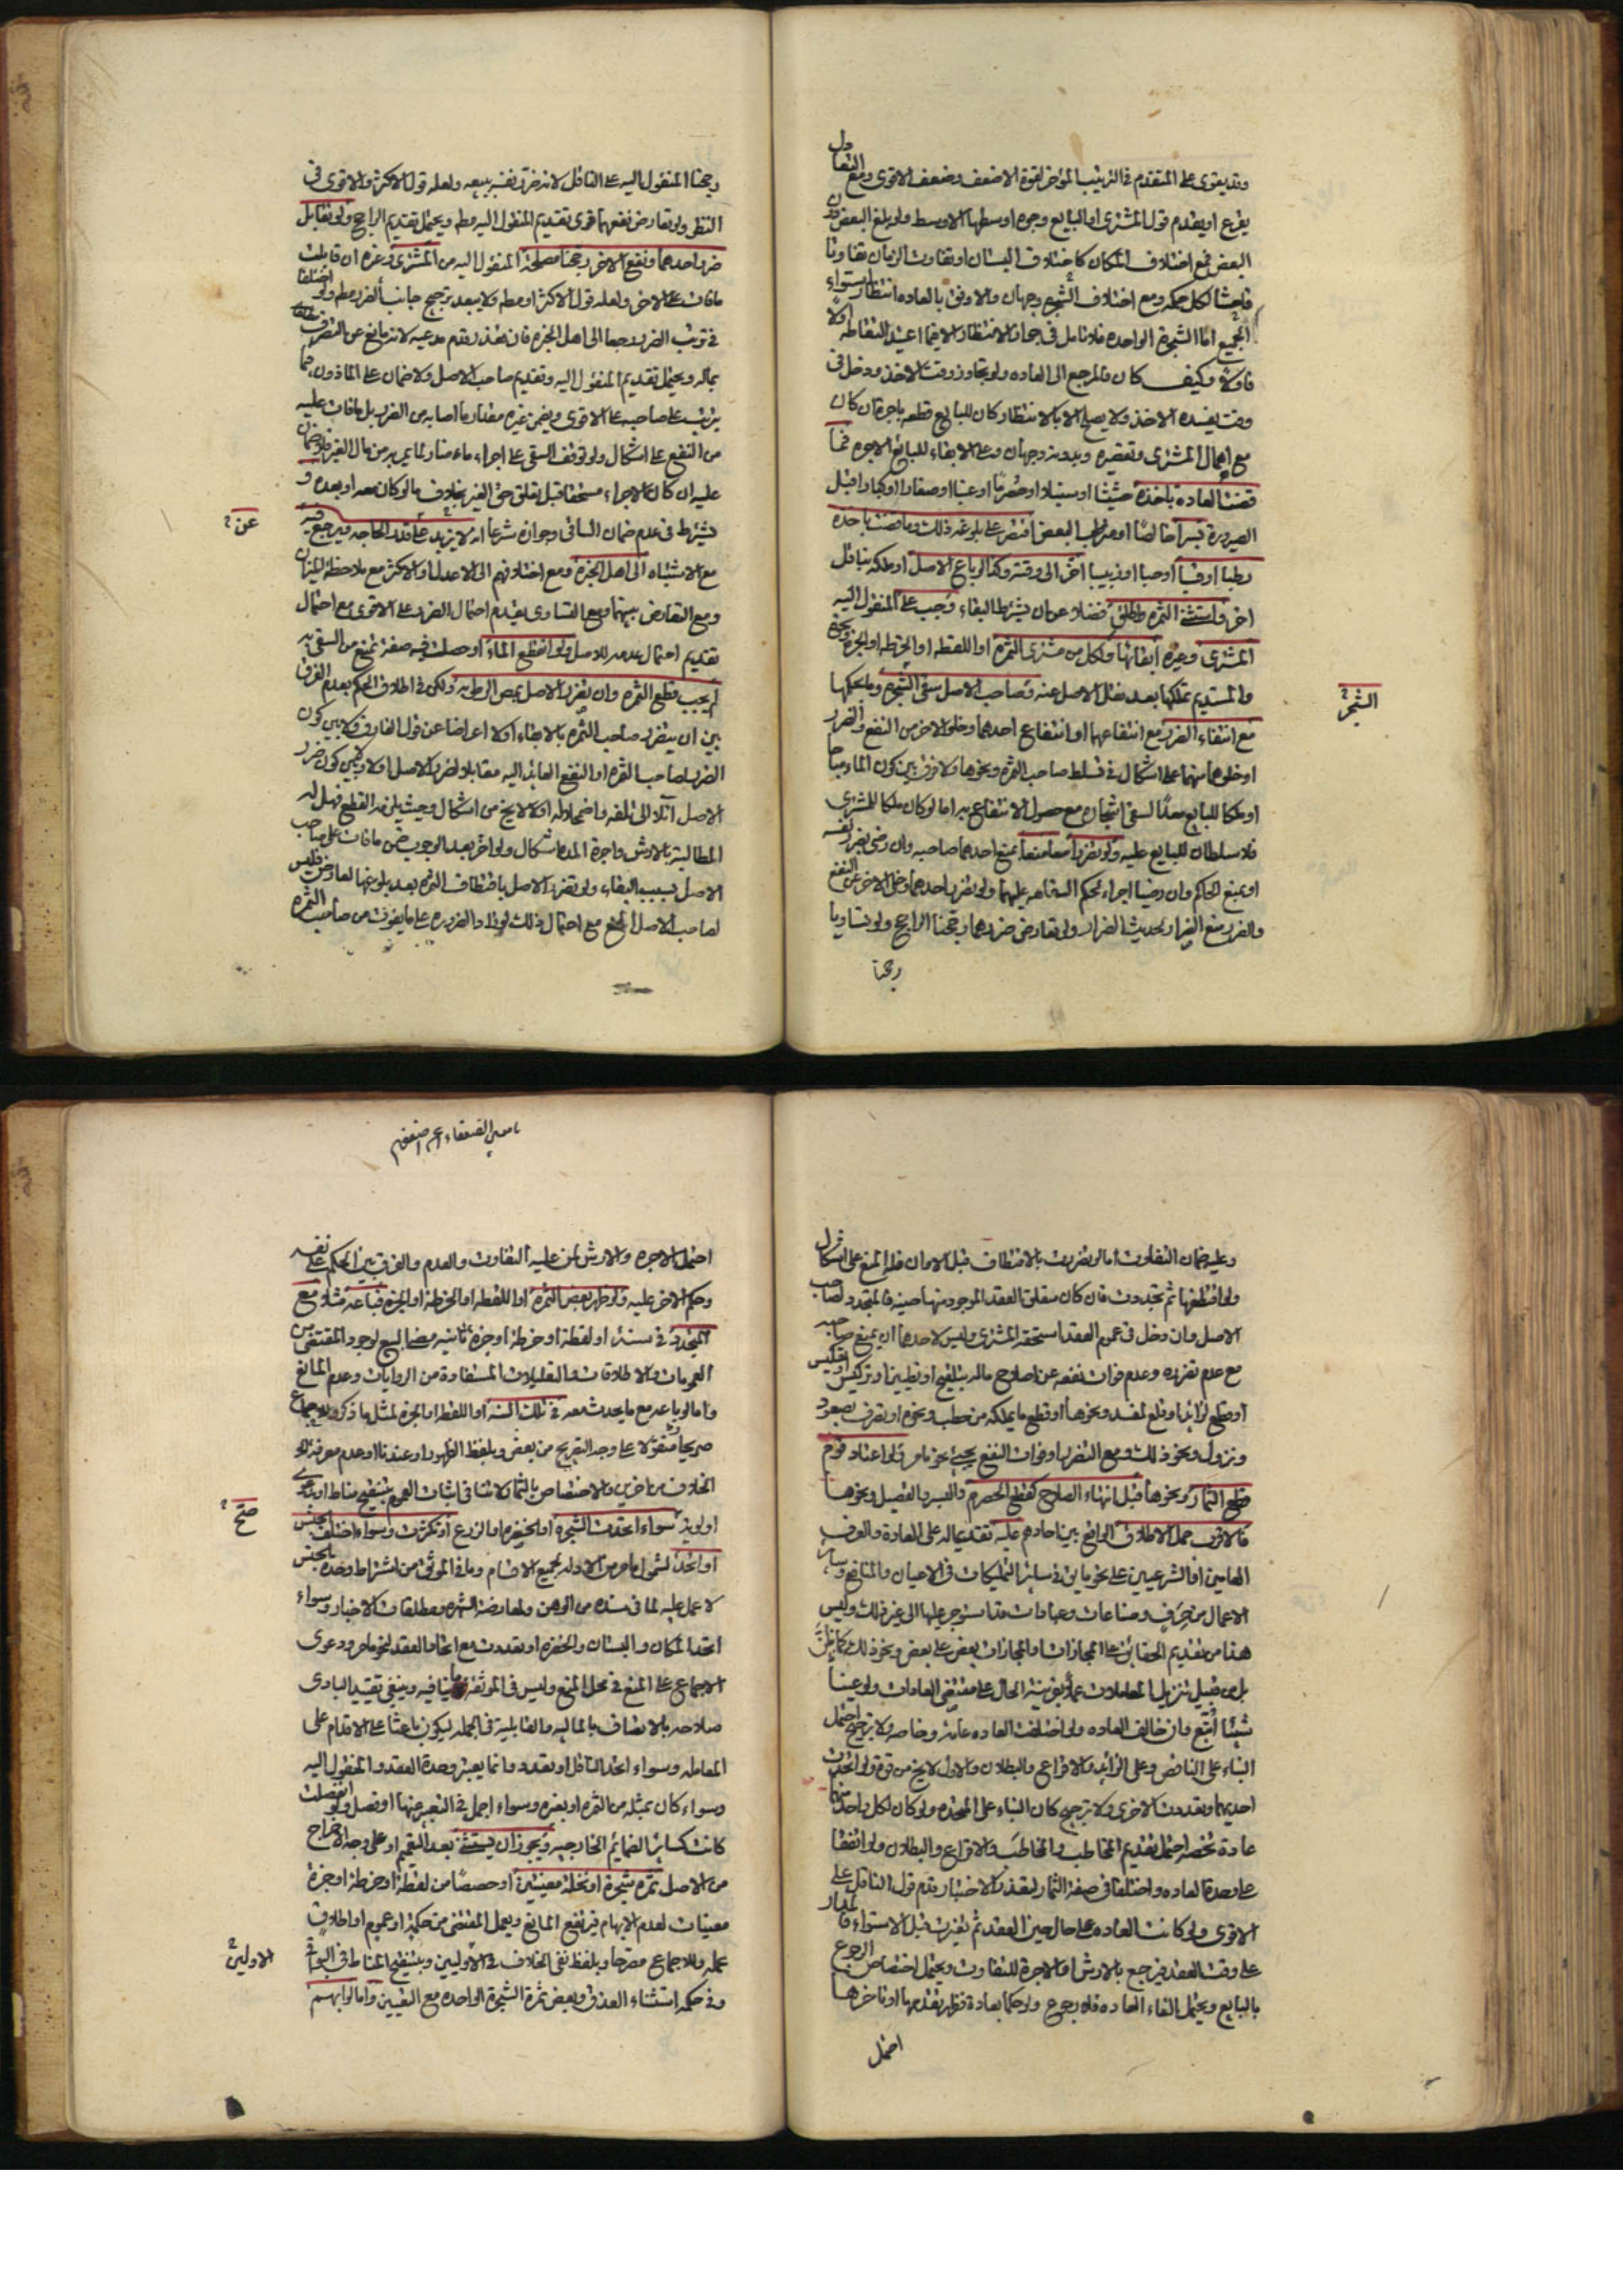 وقد يقوى على المتقدم في الترتيب المؤخر لقوة الاضعف وضعف الاقوى ومع التعادل
يقرع او يقدم قول المشتري او البايع وجوه اوسطها الاوسط ولو بلغ البعض دون
البعض فمع اختلاف المكان كاختلاف البستان او تفاوت الزمان تفاوتا
فاحشا لكل حكمه ومع اختلاف الشجر وجهان والاوفق بالعاده انتظار استواء
الجميع اما الشجرة الواحده فلا تامل في جواز الانتظار الا فيما اعتيد التقاطه اولا
فاولا وكيف كان فالمرجع الى العاده ولو تجاوز وقت الاخذ ودخل في
وقت يفسده الاخذ ولا يصلح الا بالانتظار كان للبايع قطعه باجرة ان كان
مع اهمال المشتري وتقصيره وبدونه وجهان وعلى الابقاء للبائع الاجره فما
قضت العاده باخذه او عنبا او صغارا او كبارا قبل
الصيرورة بسرا خالصا او مرطب البعض اقتصر على بلوغه ذلك وما قضت باخذه
رطبا او قسبا او حبا او زبيبا اخر الى وقته وكذا لو باع الاصل او ملكه بناقل
اخر واستثنى الثمره واطلق فضلا عن ان يشترط البقاء وجب على المنقول اليه
المشتري وغيره ابقائها ولكل من مشتري الثمره او اللقطه او الخرطه او الجزه ونحوهم
والمستديم تملكها بعد نقل الاصل عنه وصاحب الاصل سقي الشجر وما بحكمها
الشجر
مع انتفاء الضرر مع انتفاعهما او انتفاع احدهما وخلو الاخر من النفع والضرر
او خلوهما منهما على اشكال في تسلط صاحب الثمره ونحوها ولا فرق بين كون الماء مباحا
او ملكا للبايع معدا لسقي اشجاره مع حصول الانتفاع به اما لو كان ملكا للمشتري
فلا سلطان للبايع عليه ولو تضررا معا منعا بمنع احدهما صاحبه وان رضي بضرر نفسه
او بمنع الحاكم وان رضيا اجراء لحكم السفاهه عليهما ولو تضرر احدهما وخلى الاخر عن النفع
والضرر منع الضرار لحديث الضرار ولو تعارض ضررهما رجحنا الراجح ولو تساويا
رجحنا
رجحنا المنقول اليه على الناقل لانه ضرر نفسه ببيعه ولعله قول الاكثر والاقوى في
النظر ولو تعارض نفعهما قوى تقديم المنقول اليه مطه ويحتمل تقديم الراجح ولو تقابل
ضرر احدهما ونفع الاخر رجحنا مصلحة المنقول اليه من المشتري وغيره ان قابلت
مافات على الاخر ولعله قول الاكثر او مطه ولا يبعد ترجيح جانب الضرر مطه ولو اختلفا
في ترتب الضرر رجعا الى اهل الخبره فان تعذر قدم مدعيه لانه مانع عن التصرف
بماله ويحتمل تقديم المنقول اليه وتقديم صاحب الاصل ولا ضمان على الماذون فيما
يترتب على صاحبه على الاقوى ويضمن غيره مقدار ما اصابه من الضرر بل مافات عليه
من النفع على اشكال ولو توقف السقي على اجراء ماء ضار لما يمر به من مال الغير فلا ضمان
عليه ان كان الاجراء مستحقا قبل تعلق حق الغير بخلاف ما لو كان معه او بعده و
يشترط في عدم ضمان الساقي وجوازه شرعا انه لا يزيد على قدر الحاجه فيرجع فيه
عن
مع الاشتباه الى اهل الخبره ومع اختلافهم الى الاعدل والاكثر مع ملاحظة الميزان
ومع التعارض بينهما ومع التساوي يقدم احتمال الضرر على الاقوى مع احتمال
تقديم احتمال عدمه للاصل ولو انقطع الماء او حصلت فيه صفة تمنع من السقي به
لم يجب قطع الثمره وان تضرر الاصل بمص الرطوبه ولكن في اطلاق الحكم بعدم الفرق
بين ان يتضرر صاحب الثمره بالابقاء او لا اعراضا عن قول الفارق ولا بين كون
الضرر لصاحب الثمره او النفع العائد اليه مقابلا لضرر الاصل او لا وبين كون ضرر
الاصل آئلا الى تلفه واضمحلاله او لا لا يخ من اشكال وحيث يلزمه القطع فهل له
المطالبة بالارش واجرة المده اشكال ولو اخر بعد الوجوب ضمن مافات على صاحب
الاصل بسبب البقاء ولو تضرر الاصل باقتطاف الثمره بعد بلوغها لعارض فليس
لصاحب الاصل المنع مع احتمال ذلك لو زاد الضرر على ما يفوت من صاحب الثمره
وعليه ضمان التفاوت اما لو تضررت بالاقتطاف قبل الاوان فله المنع على اشكال
ولو اقتطفها ثم تجددت فان كان متعلق العقد الموجود منها حينه فالمتجدد لصاحب
الاصل وان دخل في عموم العقد استحقه المشتري وليس لاحدهما ان يمنع صاحبه
مع عدم تضرره وعدم فوات نفعه عن اصلاح ماله بتلقيح او تطيين او
او قطع لزائد او قلع لمفسد ونحوها او قطع ما يملكه من حطب ونحوه او تصرف بصعود
ونزول ونحو ذلك ومع التضرر او فوات النفع يجيء نحو ما مر ولو اعتاد قوم
قطع الثمار ونحوها قبل انتهاء الصلاح كقطع الحصرم والبسر والفصيل ونحوها
فالاقرب حمل الاطلاق الواقع بين احادهم عليه تقديما له على العادة والعرف
العامين او الشرعيين على نحو ما يق في ساير التمليكات في الاعيان والمنافع وساير
الاعمال من حرف وصناعات وعبادات قد استوجر عليها الى غير ذلك وليس
هذا من تقديم الحقائق على المجازات والمجازات بعض على بعض ونحو ذلك كما يظن
بل من قبيل تنزيل المعاملات عملا بقرينة الحال على مقتضى العادات ولو عينا
شيئا اتبع وان خالف العاده ولو اختلفت العاده عامه وخاصه ولا ترجيح احتمل
البناء على الناقص وعلى الزائد والاقراع والبطلان والاول لا يخ من قوة ولو اتحدت
احديهما وتعددت الاخرى ولا ترجيح كان البناء على المتحده ولو كان لكل واحد منهما
عادة تخصه احتمل تقديم المخاطب والمخاطب والاقراع والبطلان ولو اتفقا
على وحدة العاده واختلفا في صفة الثمار لتعذر الاختبار قدم قول الناقل على
الاقوى ولو كانت العاده على حال حين العقد ثم تغيرت قبل الاستواء فالمدار
على وقت العقد فيرجع بالارش او الاجرة للتفاوت ويحتمل اختصاص الرجوع
بالبايع ويحتمل الغاء العاده فلا رجوع ولو حكما بعادة فظهر تقدمها او تاخرها
احتمل
احتمل الاجره والارش لمن عليه التفاوت والعدم والفرق بين الحكم على نفسه
وحكم الاخر عليه ولو ظهر بعض الثمره او اللقطه او الخرطه او الجزه فباعه مثلا مع
المتجدد في سنته او لقطة او خرطة او جزة ثانيه مضى البيع لوجود المقتضي من
العمومات والاطلاقات والتعليلات المستفادة من الروايات وعدم المانع
واما لو باعه مع ما يحدث معه في تلك السنه او اللقطه او الجزه لمثل ما ذكر وللاجماع
صريحا منقولا على وجه التصريح من بعض وبلفظ الظهور او عندنا او عدم معرفة
الخلاف من اخرين والاختصاص بالثمار لا ينافي اثبات العموم بتنقيح مناط او بدعوى
اولويه سواء اتحدت الشجره او الخضره او الزرع او تكثرت وسواء اختلف الجنس
صح
او اتحد لشمول ما مر من الادله لجميع الاقسام وما في الموثق من اشتراط وحدة الجنس
لا عمل عليه لما في سنده من الوهن ولمعارضة الشهره ومطلقات الاخبار وسواء
اتحد المكان والبستان والخضره او تعددت مع اتحاد العقد لنحو ما مر ودعوى
الاجماع على المنع في محل المنع وليس في الموثقه ما ينافيه وينبغي تقييد البادي
صلاحه بالاتصاف بالماليه والقابلية في الجمله ليكون باعثا على الاقدام على
المعامله وسواء اتحد الناقل او تعدد وانما يعتبر وحدة العقد والمنقول اليه
وسواء كان بمثله من الثمره او بغيره وسواء اجمل في التعبير عنها او فصل ولو انفصلت
كانت كسائر الضمائم الخارجيه ويجوز ان يستثنى بعد التعميم او على وجه الاخراج
من الاصل ثمره شجرة او نخلة معينتين او حصصا من لقطة او خرطة او جزة
معينات لعدم الابهام فيرتفع المانع ويعمل المقتضي من حكمة او عموم او اطلاق
عمله وللاجماع مصرحا وبلفظ نفي الخلاف في الاوليين وبتنقيح المناط في البواقي
الاوليين
وفي حكمه استثناء العذق وبعض ثمرة الشجرة الواحده مع التعيين واما لو ابهم